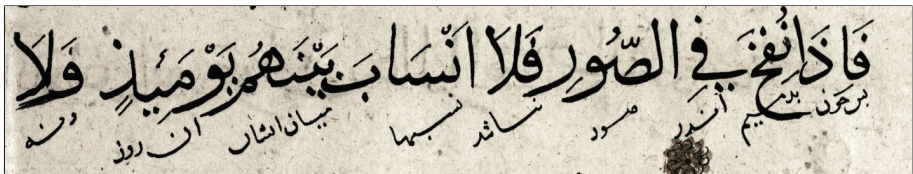 فَاذَا نُفِخَ فِي الصُّورِ فَلَا اَنْسَابَ بَيْنَهُمْ يَوْمَئِذٍ وَلَا
اندر صور نباشد نسبها میان ایشان ان روز ونه